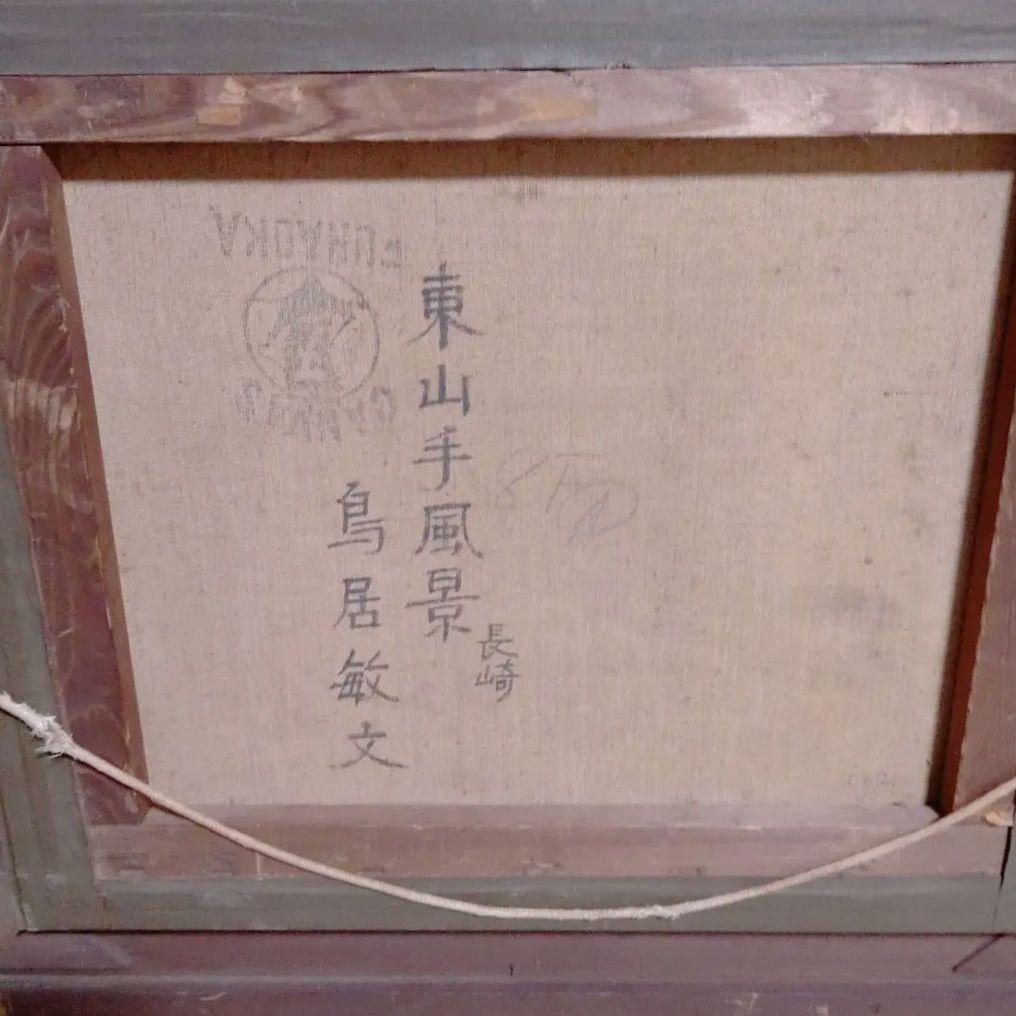 東山手風景
長崎
鳥居敏文
FUNAOKA
CANVAS